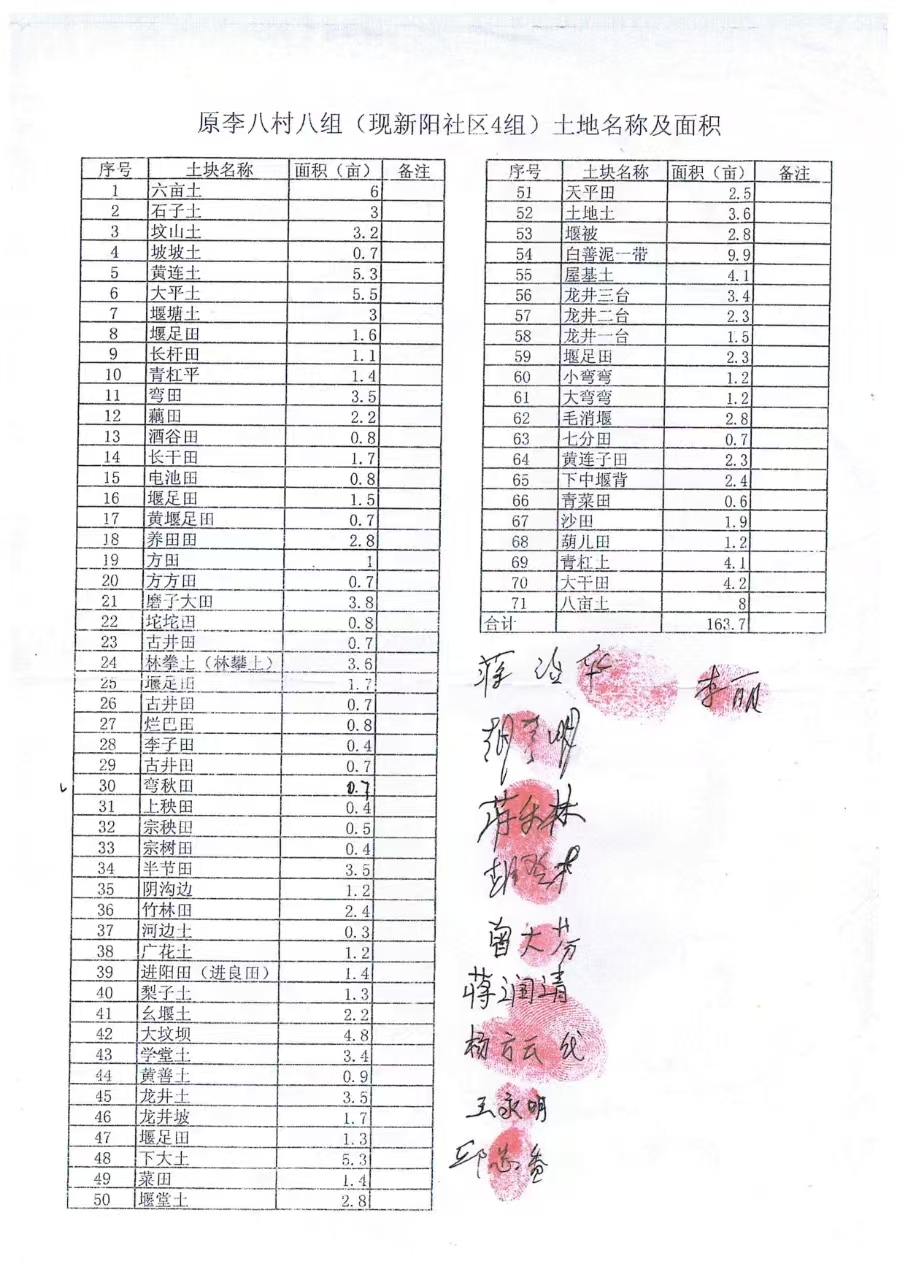 原李八村八组（现新阳社区4组）土地名称及面积
序号 土块名称 面积（亩） 备注
1 六亩土 6
2 石子土 3
3 坟山土 3.2
4 坡坡土 0.7
5 黄连土 5.3
6 大平土 5.5
7 堰塘土 3
8 堰足田 1.6
9 长杆田 1.1
10 青杠平 1.4
11 弯田 3.5
12 藕田 2.2
13 酒谷田 0.8
14 长干田 1.7
15 电池田 0.8
16 堰足田 1.5
17 黄堰足田 0.7
18 养田田 2.8
19 方田 1
20 方方田 0.7
21 磨子大田 3.8
22 坨坨田 0.8
23 古井田 0.7
24 林拳上（林攀上） 3.6
25 堰足田 1.7
26 古井田 0.7
27 烂巴田 0.8
28 李子田 0.4
29 古井田 0.7
30 弯秋田 0.7
31 上秧田 0.4
32 宗秧田 0.5
33 宗树田 0.4
34 半节田 3.5
35 阴沟边 1.2
36 竹林田 2.4
37 河边土 0.3
38 广花土 1.2
39 进阳田（进良田） 1.4
40 梨子土 1.3
41 幺堰土 2.2
42 大坟坝 4.8
43 学堂土 3.4
44 黄善土 0.9
45 龙井土 3.5
46 龙井坡 1.7
47 堰足田 1.3
48 下大土 5.3
49 菜田 1.4
50 堰堂土 2.8
序号 土块名称 面积（亩） 备注
51 天平田 2.5
52 土地土 3.6
53 堰被 2.8
54 白善泥一带 9.9
55 屋基土 4.1
56 龙井三台 3.4
57 龙井二台 2.3
58 龙井一台 1.5
59 堰足田 2.3
60 小弯弯 1.2
61 大弯弯 1.2
62 毛消堰 2.8
63 七分田 0.7
64 黄连子田 2.3
65 下中堰背 2.4
66 青菜田 0.6
67 沙田 1.9
68 葫儿田 1.2
69 青杠上 4.1
70 大干田 4.2
71 八亩土 8
合计 163.7
李丽
曾大芬
蒋润清
杨方云
王家明